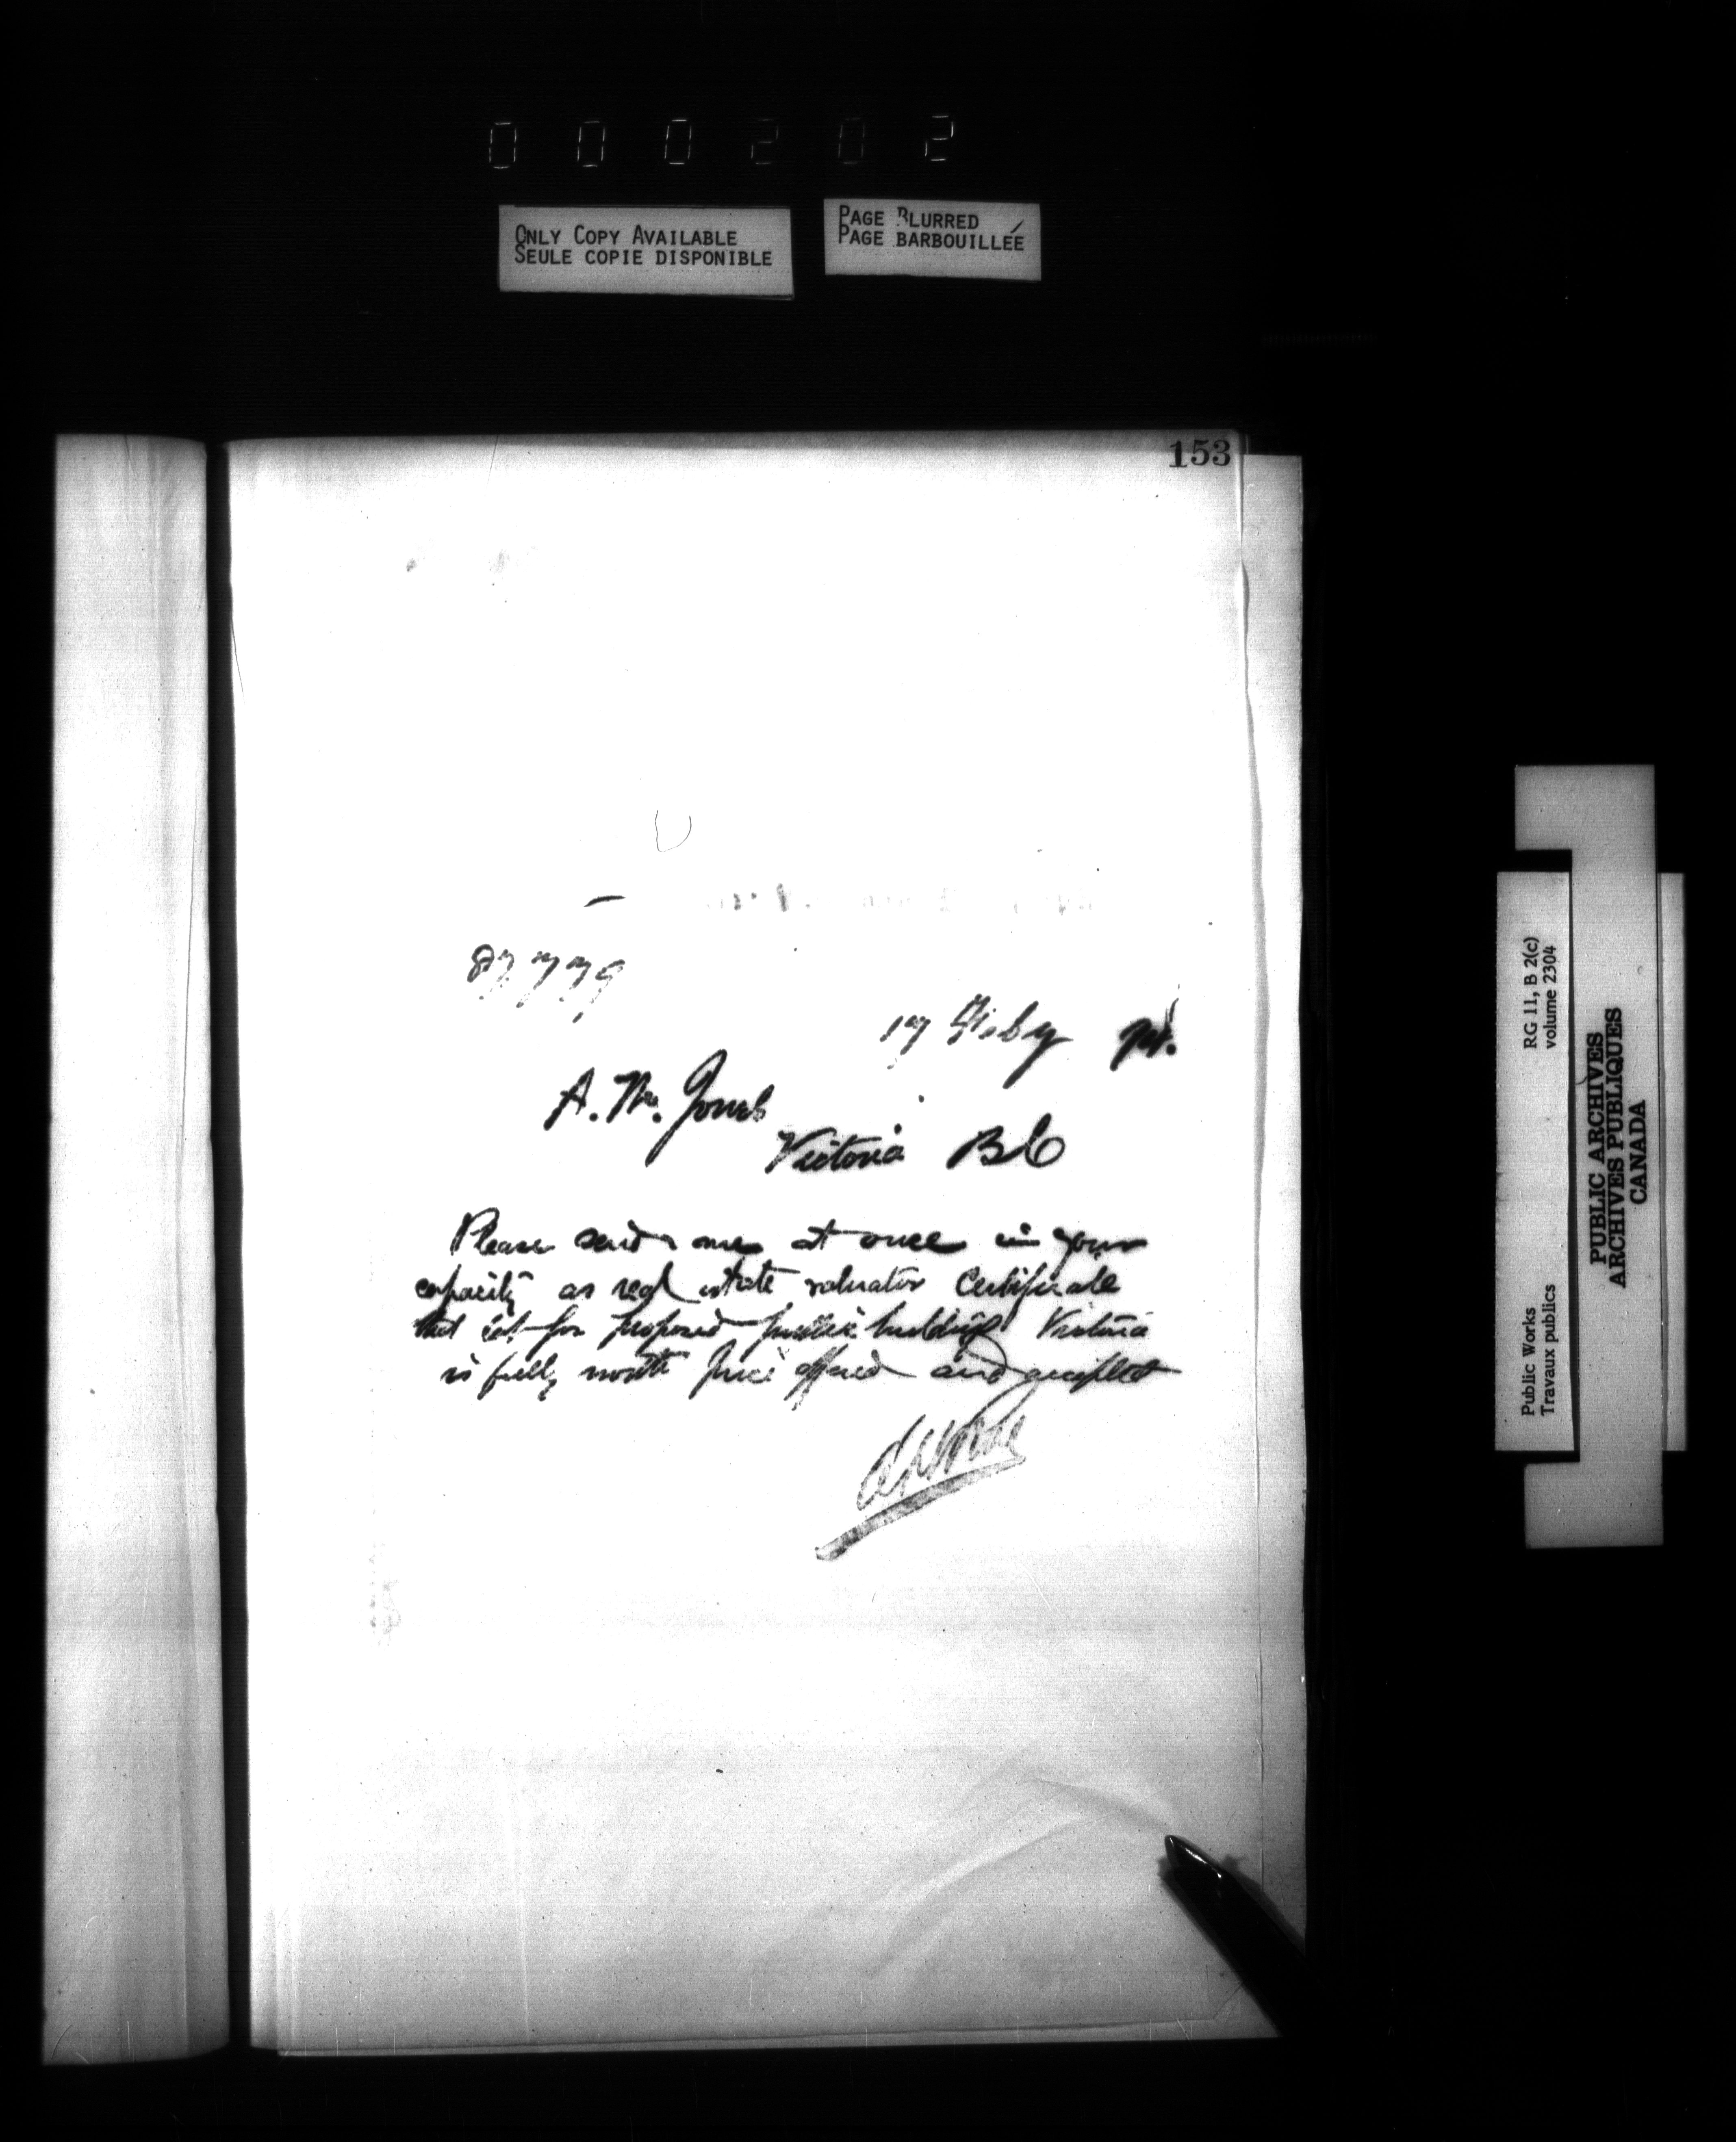 000202
ONLY COPY AVAILABLE
SEULE COPIE DISPONIBLE
PAGE BLURRED
PAGE BARBOUILLÉE
153
87779
17 Feby
A. W. Jones
Victoria BC
Please send me at once in your
capacity as real estate valuator Certificate
that lot for proposed public building Victoria
is fully worth price offered and accepted
RG 11, B 2(c)
volume 2304
Public Works
Travaux publics
PUBLIC ARCHIVES
ARCHIVES PUBLIQUES
CANADA